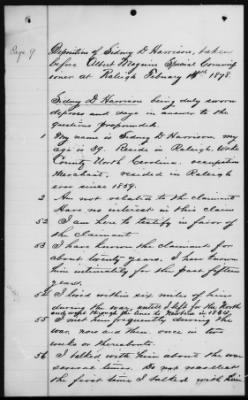 Page 9
Deposition of Sidney D Harrison, taken
before Albert Magnin Special Commiss
ioner at Raleigh February 14th 1878.
Sidney D Harrison being duly sworn
deposes and says in answer to the
questions propounded.
My name is Sidney D Harrison, my
age is 39. Reside in Raleigh, Wake
County North Carolina. occupation
Merchant, resided in Raleigh
ever since 1859.
2 Am not relation to the claimant
Have no interest in this claim
52 I am here to testify in favor of
the claimant
53 I have known the claimant for
about twenty years. I have known
him intimately for the past fifteen
years.
54 I lived within six miles of him
during the war, until I left for the North
through the lines to in 1864
55 I met him frequently during the
war, now and then once in two
weeks or thereabouts.
56 I talked with him about the war
several times. Do not recollect
the first time I talked with him